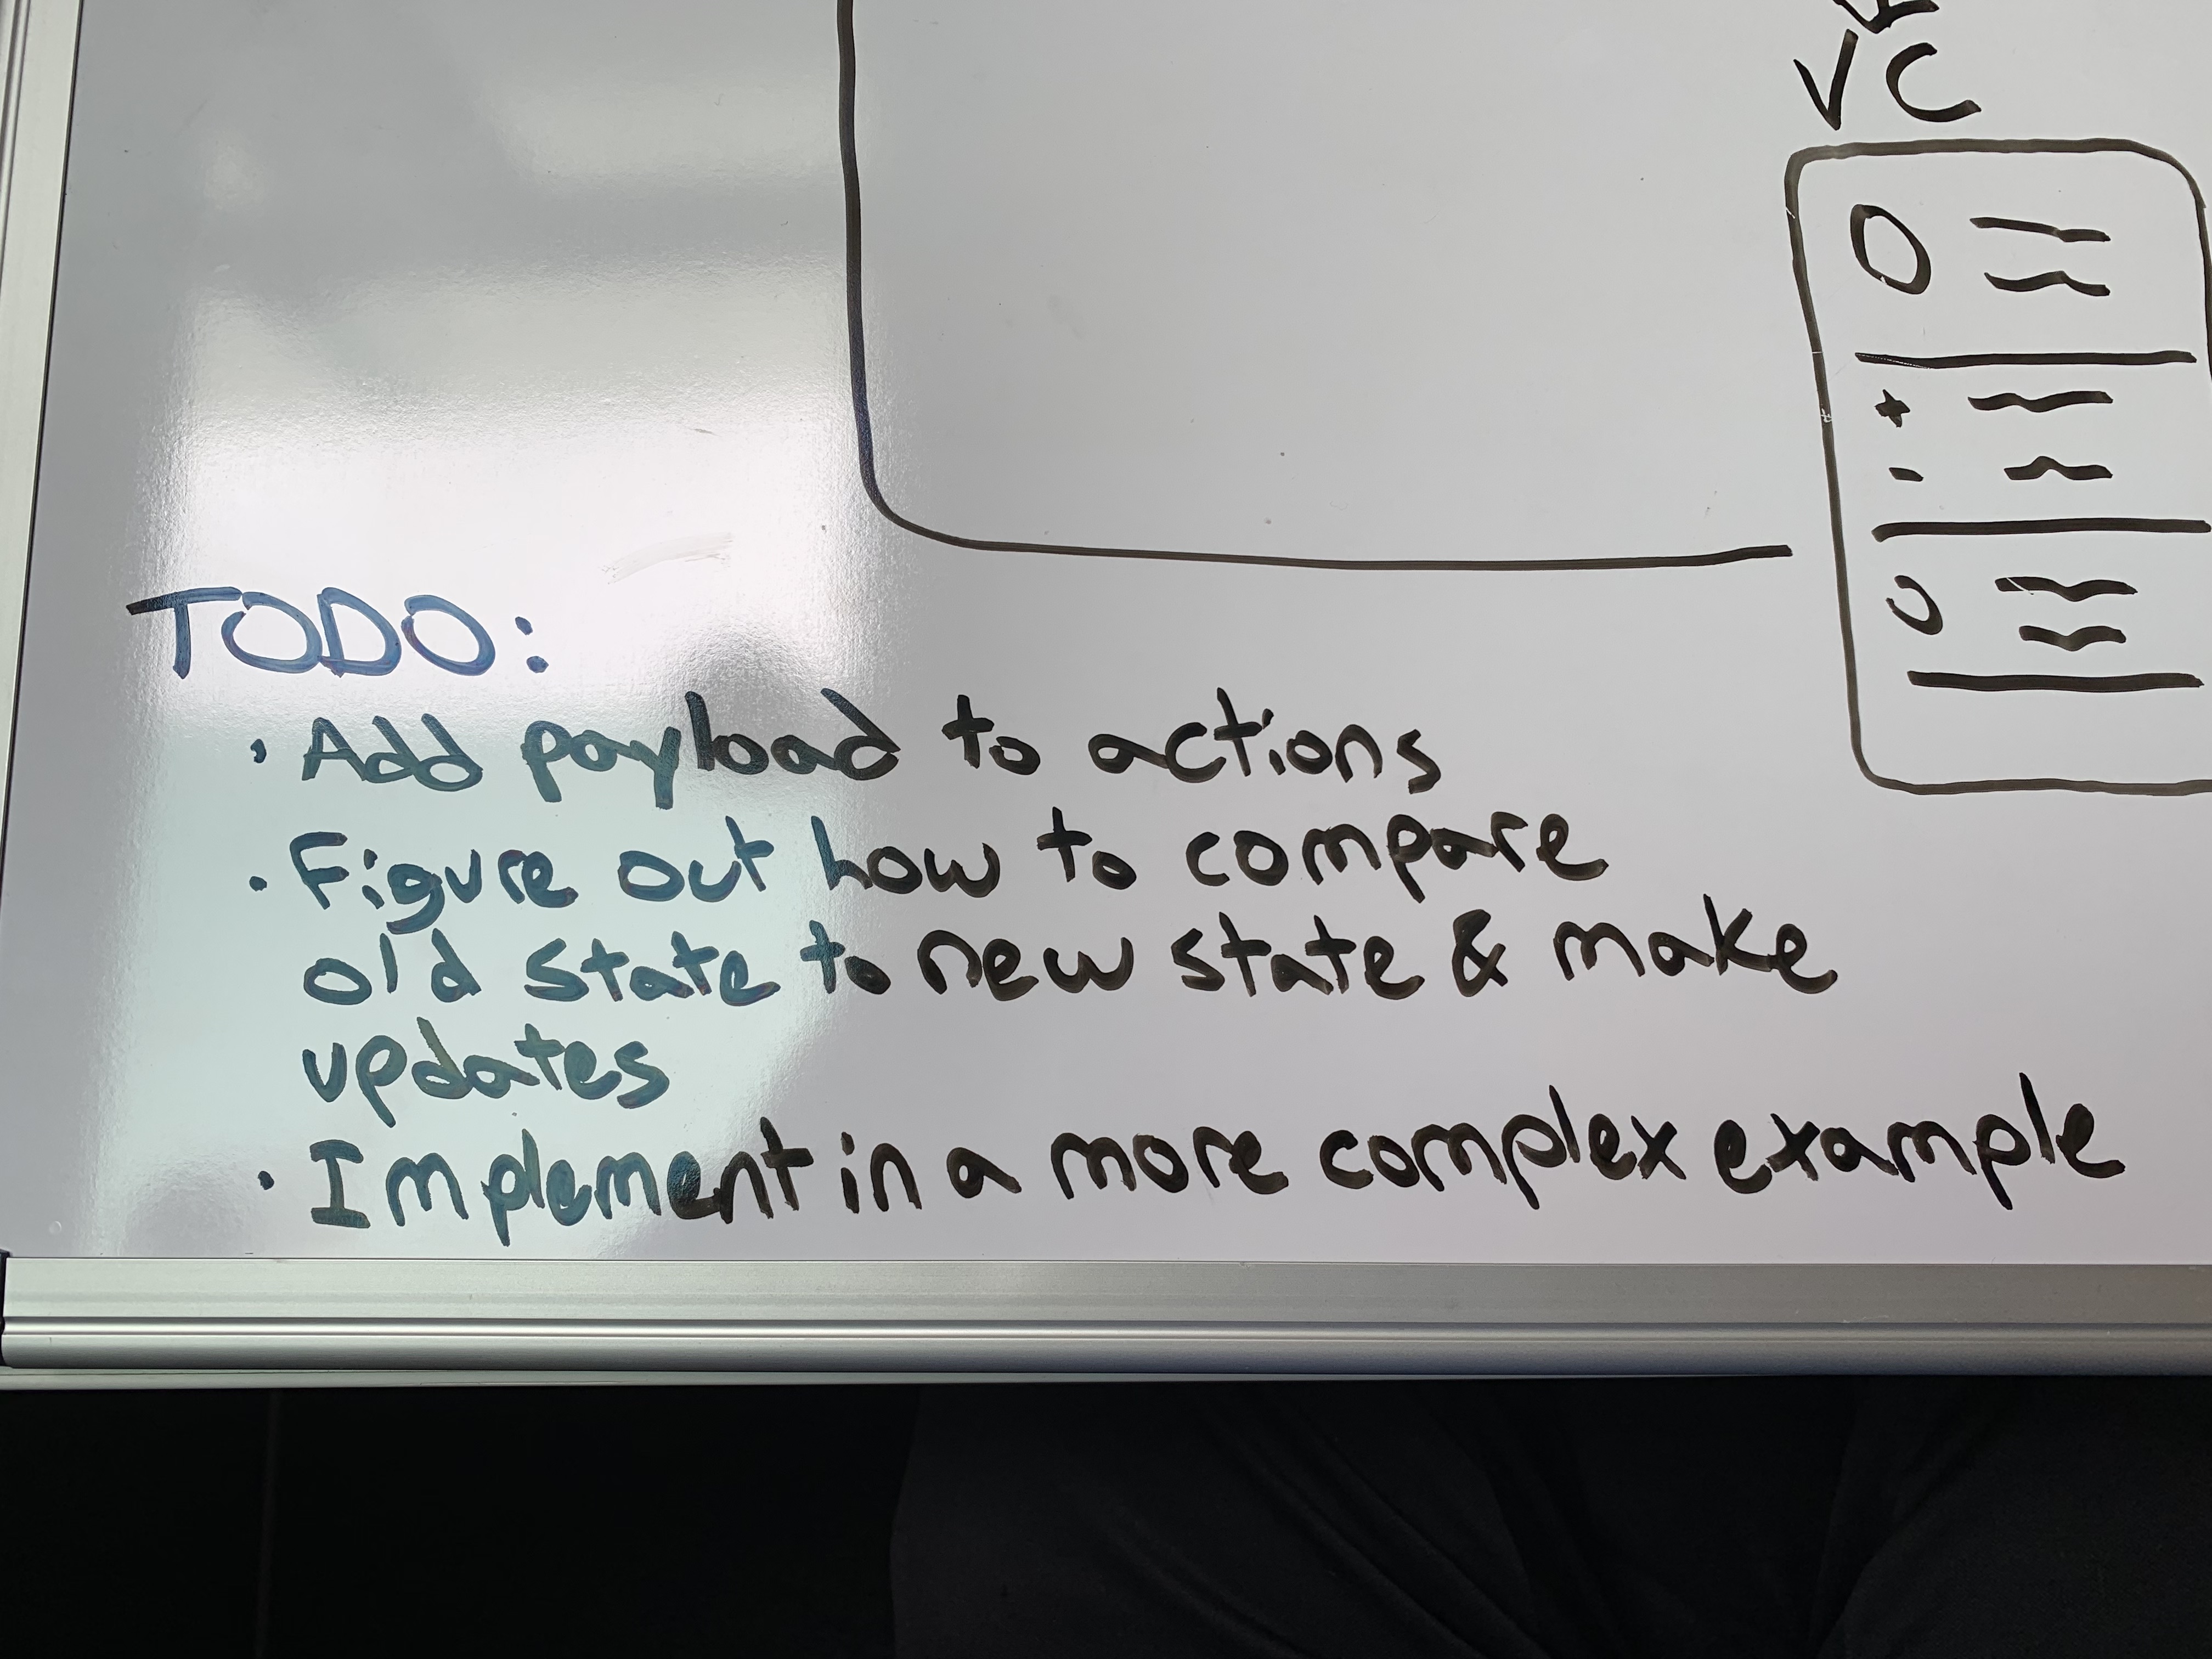 VC
TODO:
· Add payload to actions
· Figure out how to compare
old state to new state & make
updates
· Implement in a more complex example